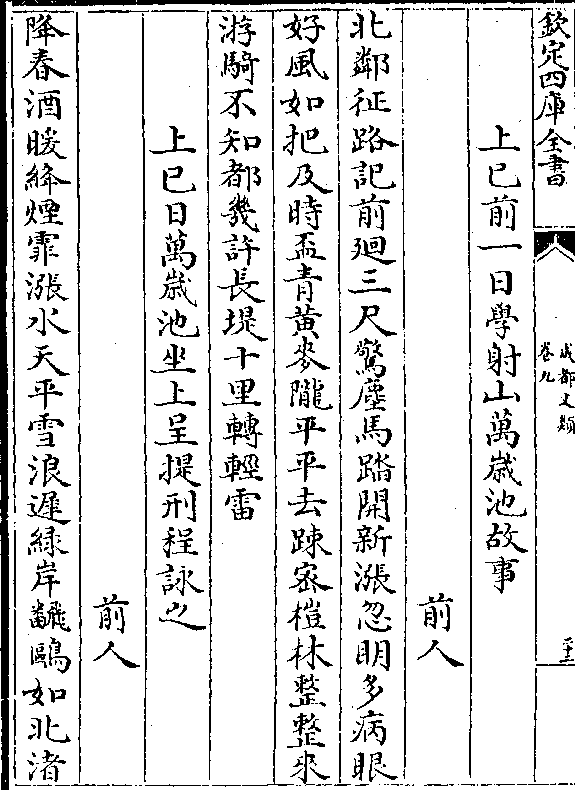 欽定四庫全書
成都文類
卷九
二十三
上巳前一日學射山萬歲池故事
前人
北鄰征路記前廻三尺驚塵馬踏開新漲忽明多病眼
好風如把及時盃青黃麥隴平平去踈宻榿林整整來
游騎不知都幾許長堤十里轉輕雷
上巳日萬歲池坐上呈提刑程詠之
前人
降春酒暖絳煙霏漲水天平雪浪遲緑岸翩鷗如北渚